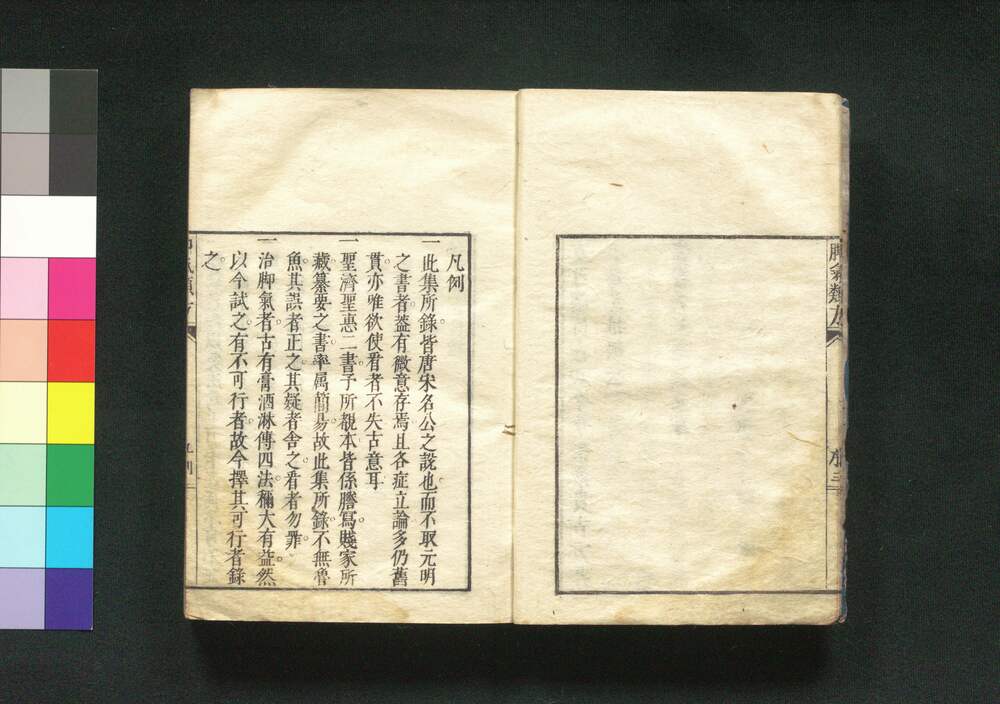 脚氣類方
凡例
一此集所錄皆唐宋名公之說也而不取元明
之書者蓋有微意存焉且各症立論多仍舊
貫亦唯欲使看者不失古意耳
一聖濟聖惠二書予所覩本皆係謄寫賤家所
藏纂要之書率屬簡易故此集所錄不無魯
魚其誤者正之其疑者舍之看者勿罪
一治脚氣者古有膏酒淋傅四法稱大有益然
以今試之有不可行者故今擇其可行者錄
之